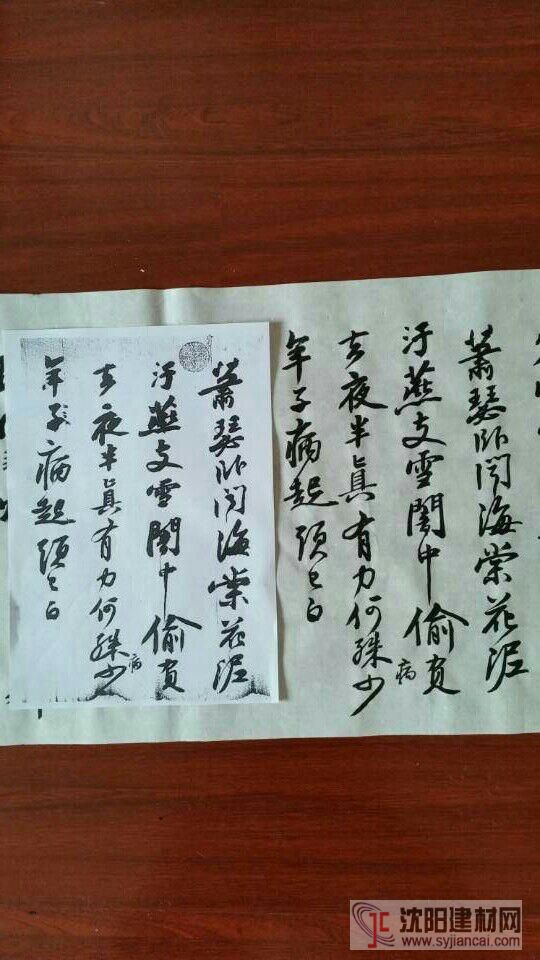 蕭瑟臥聞海棠花泥
汙燕支雪闇中偷負
去夜半真有力何殊少
病
年子病起頭已白
蕭瑟臥聞海棠花泥
汙燕支雪闇中偷負
去夜半真有力何殊少
病
年子病起頭已白
沈阳建材网
www.syjiancai.com